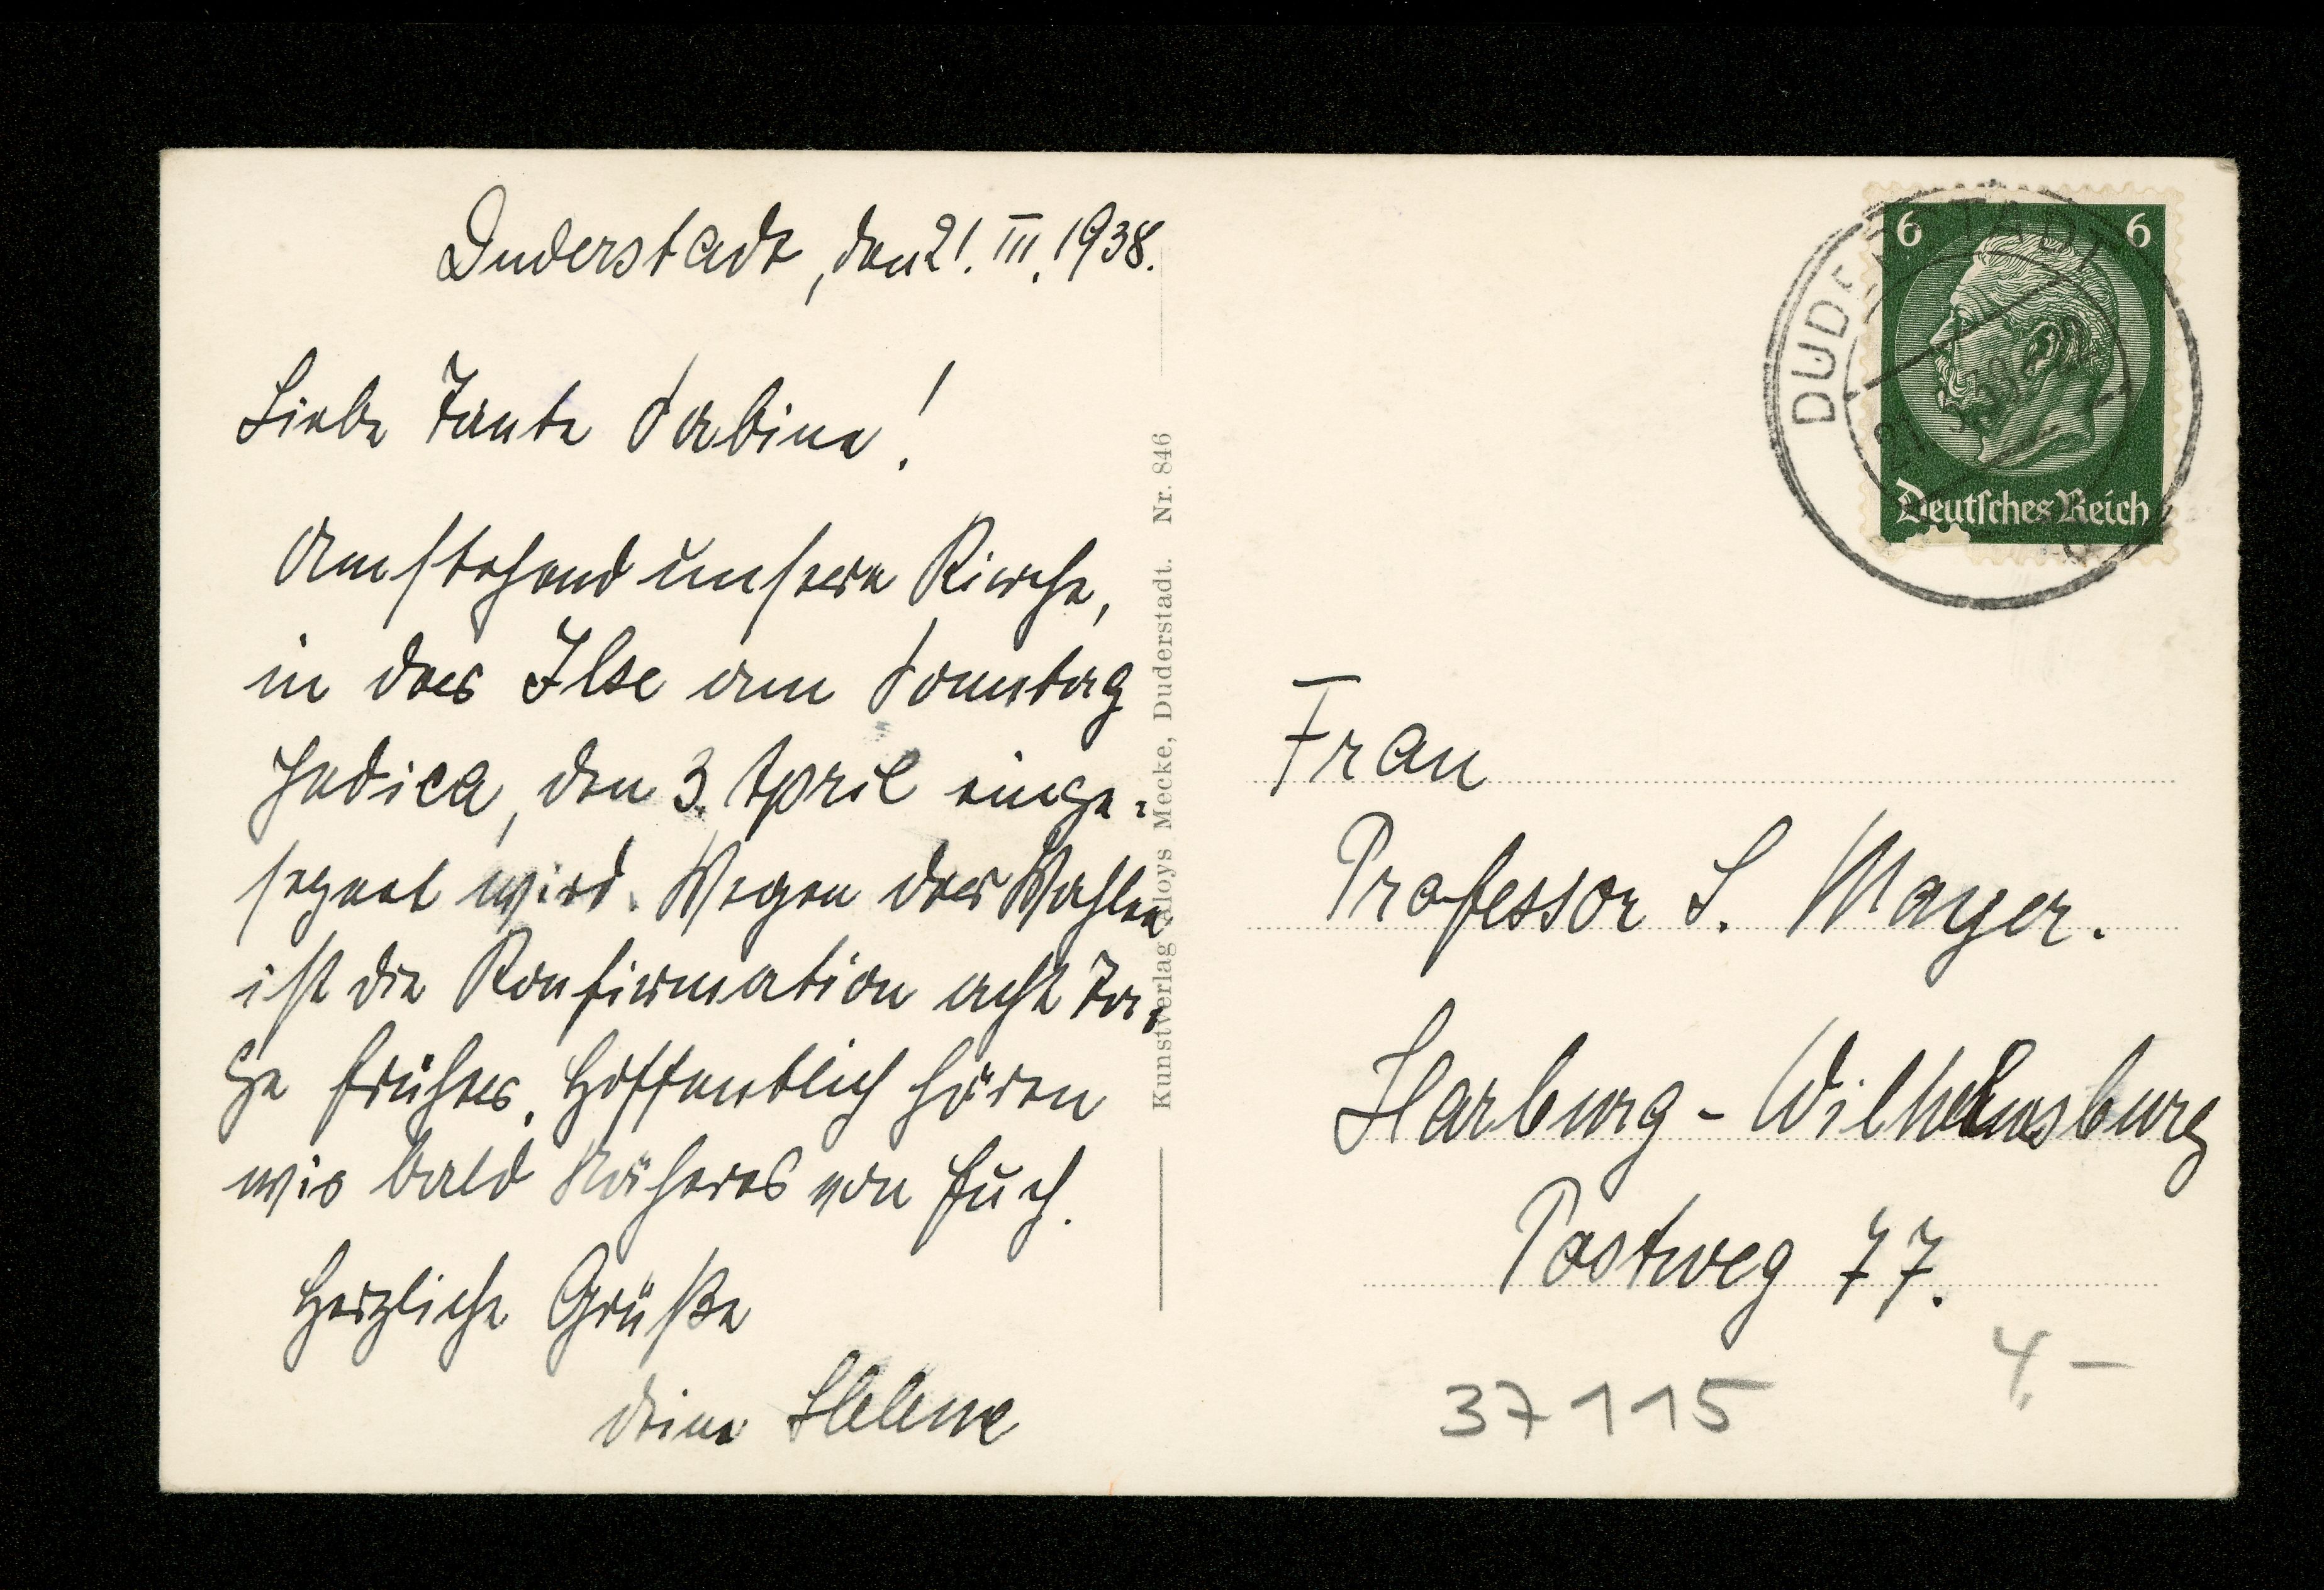 Duderstadt, den 21. III. 1938.
Liebe Tante Sabine!
Umstehend unsere Kirche,
in der Ilse am Sonntag
Judica, den 3. April einge-
segnet wird. Wegen der Wahlen
ist die Konfirmation acht Ta-
ge früher. Hoffentlich hören
wir bald Näheres von Euch.
Herzliche Grüße
Deine Helene
Kunstverlag Aloys Mecke, Duderstadt. Nr. 846
6 6
Deutsches Reich
DUDERSTADT
21.3.38
Frau
Professor S. Mayer.
Harburg-Wilhelmsburg
Postweg 77.
4,-
37115